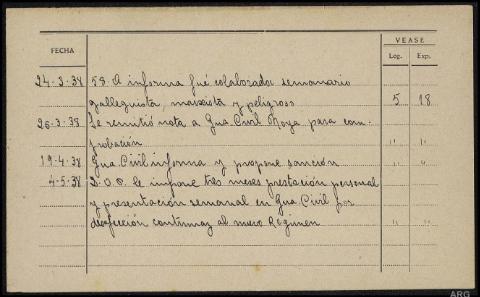 FECHA
VEASE
Leg. Exp.
24-3-38 58. A informa fué colaborador semanario
galleguista, marxista y peligroso 5 18
26-3-38 Se remitió nota a Gua. Civil Noya para com-
probación " "
19-4-38 Gua. Civil informa y propone sanción " "
4-5-38 D.O.P. le impone tres meses prestación personal
y presentación semanal en Gua Civil por
desafección continuaz al nuevo Régimen " "
ARG